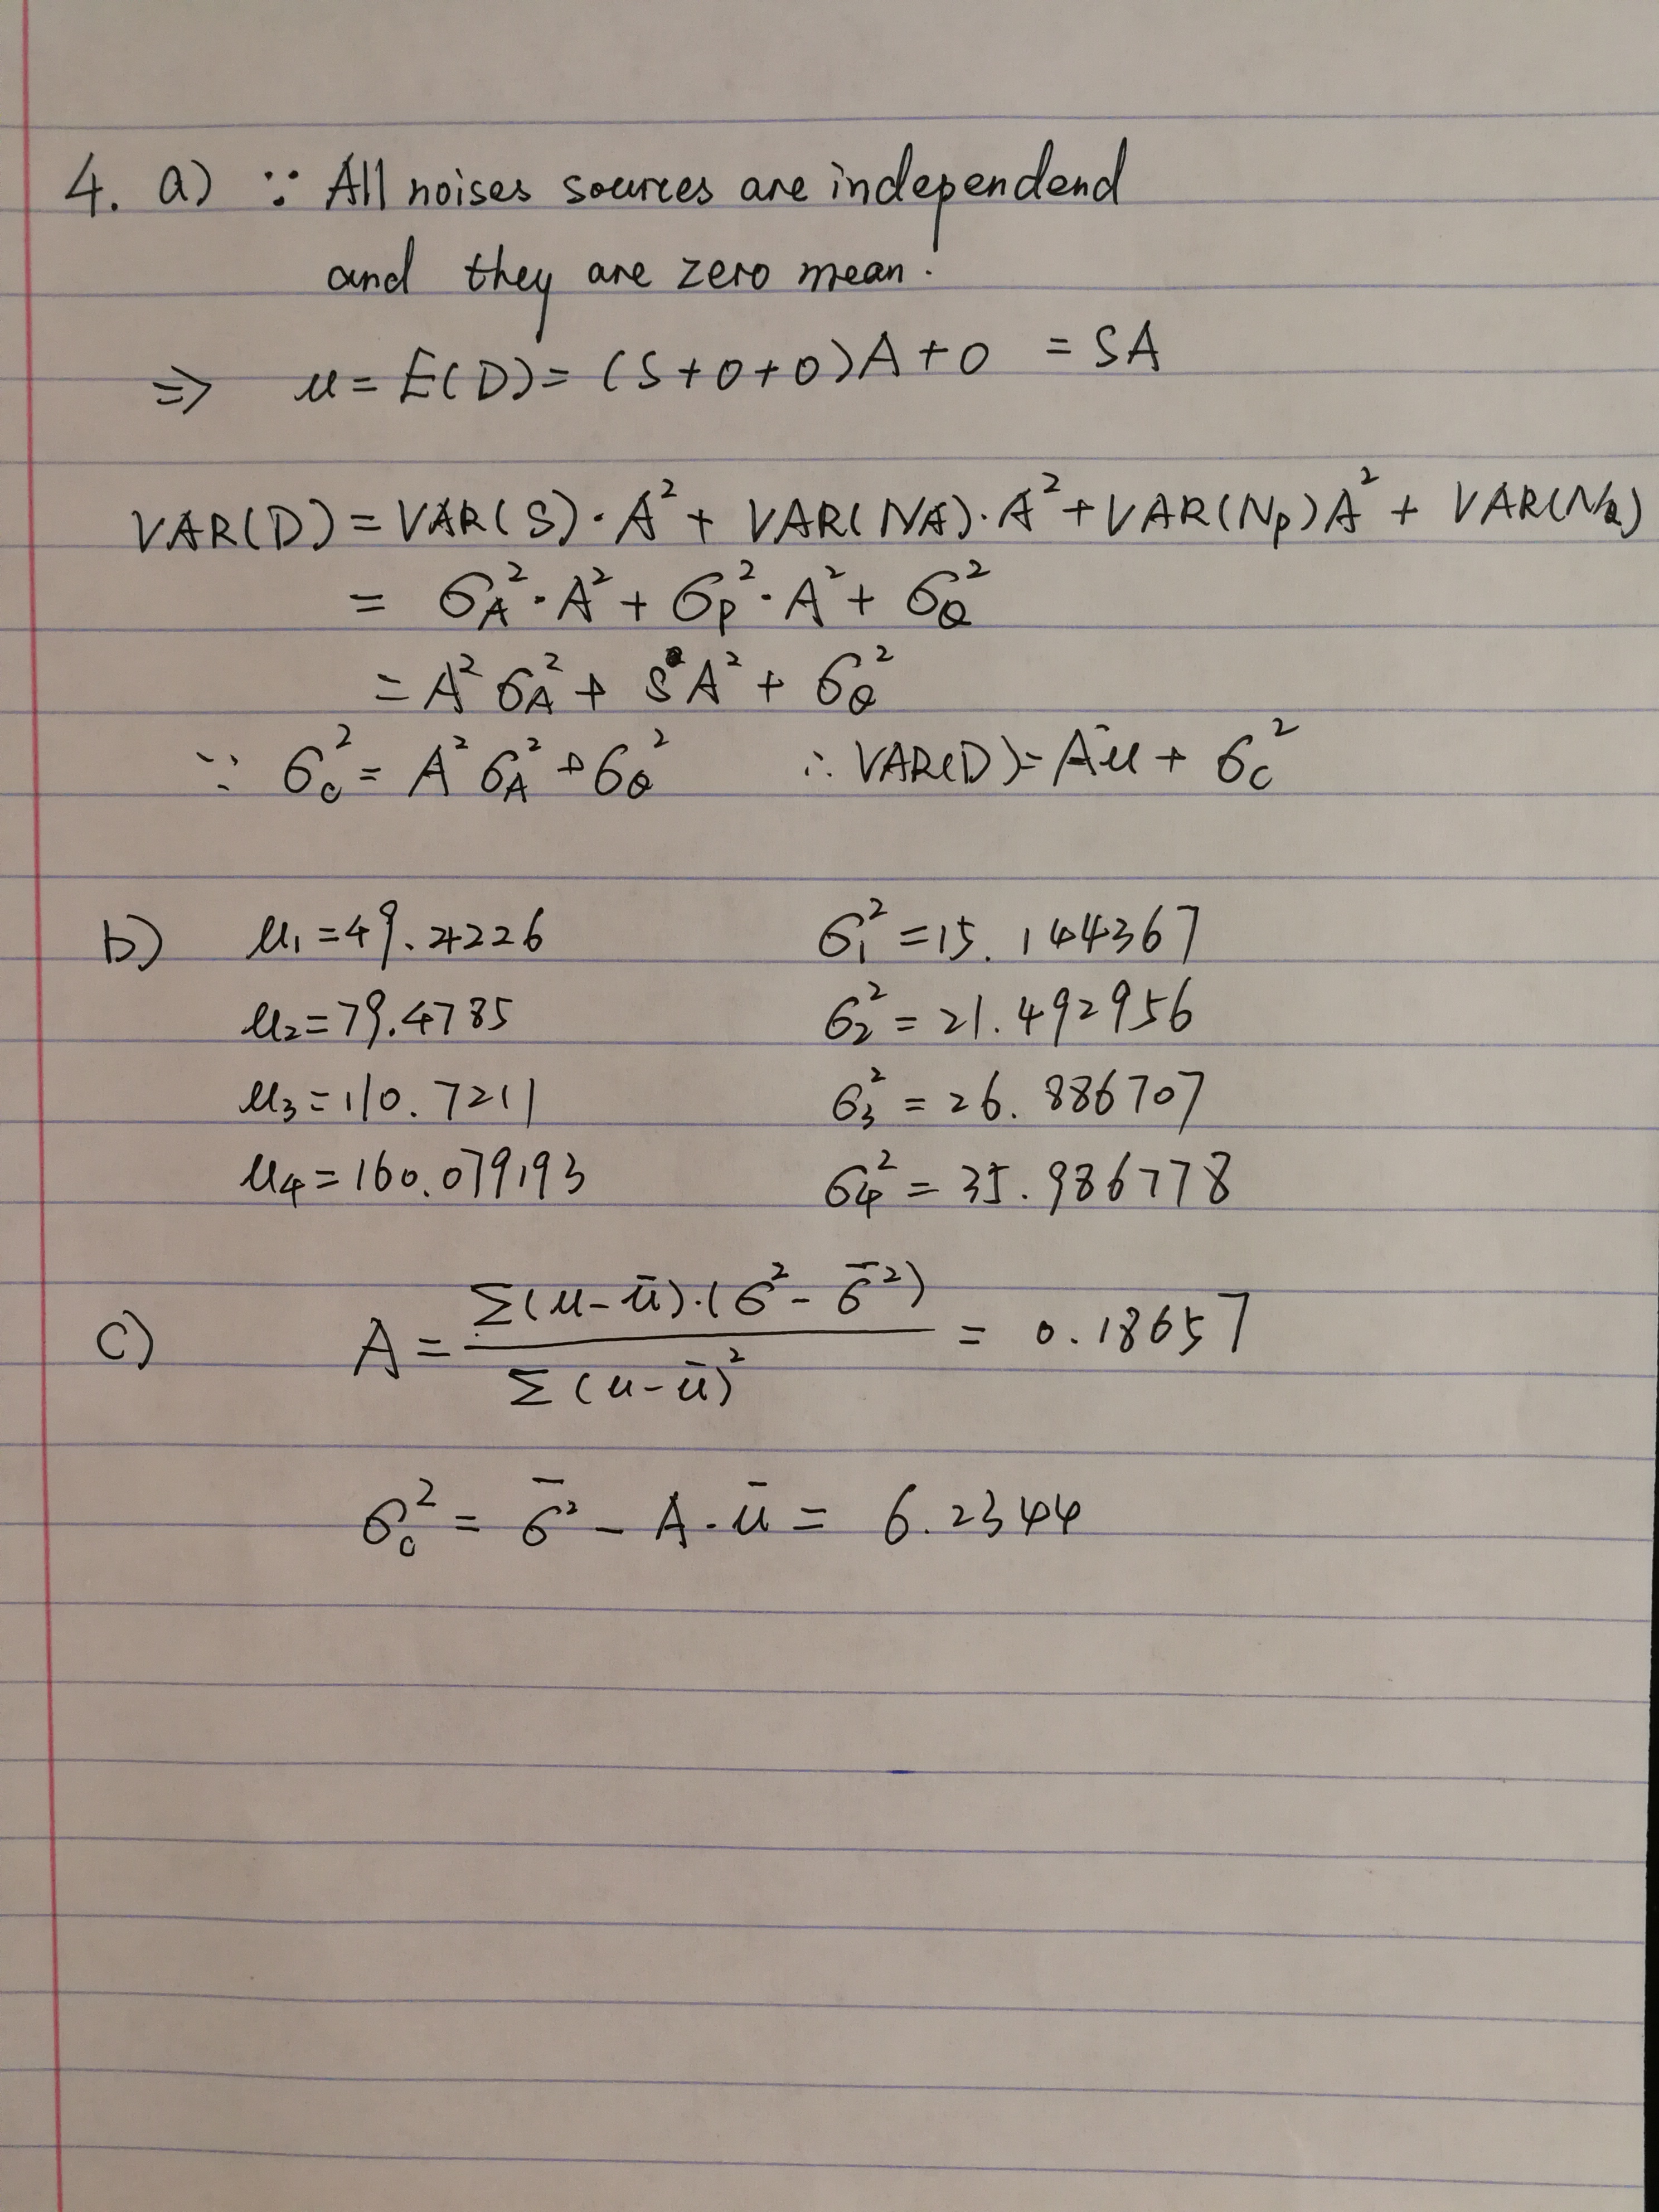 4. a) ∵ All noises sources are independend
and they are zero mean.
⇒ μ = E(D) = (S+0+0)A+0 = SA
VAR(D) = VAR(S)·A² + VAR(NA)·A² + VAR(Np)A² + VAR(NQ)
= σA²·A² + σP²·A² + σQ²
= A²σA² + SA² + σQ²
∵ σc² = A²σA² + σQ² ∴ VAR(D) = Aμ + σc²
b) μ1 = 49.4226 σ1² = 15.144367
μ2 = 79.4785 σ2² = 21.492956
μ3 = 110.7211 σ3² = 26.886707
μ4 = 160.079193 σ4² = 35.986778
c) A = Σ(μ-μ̄)·(σ²-σ̄²) / Σ(μ-μ̄)² = 0.18657
σc² = σ̄² - A·μ̄ = 6.2344